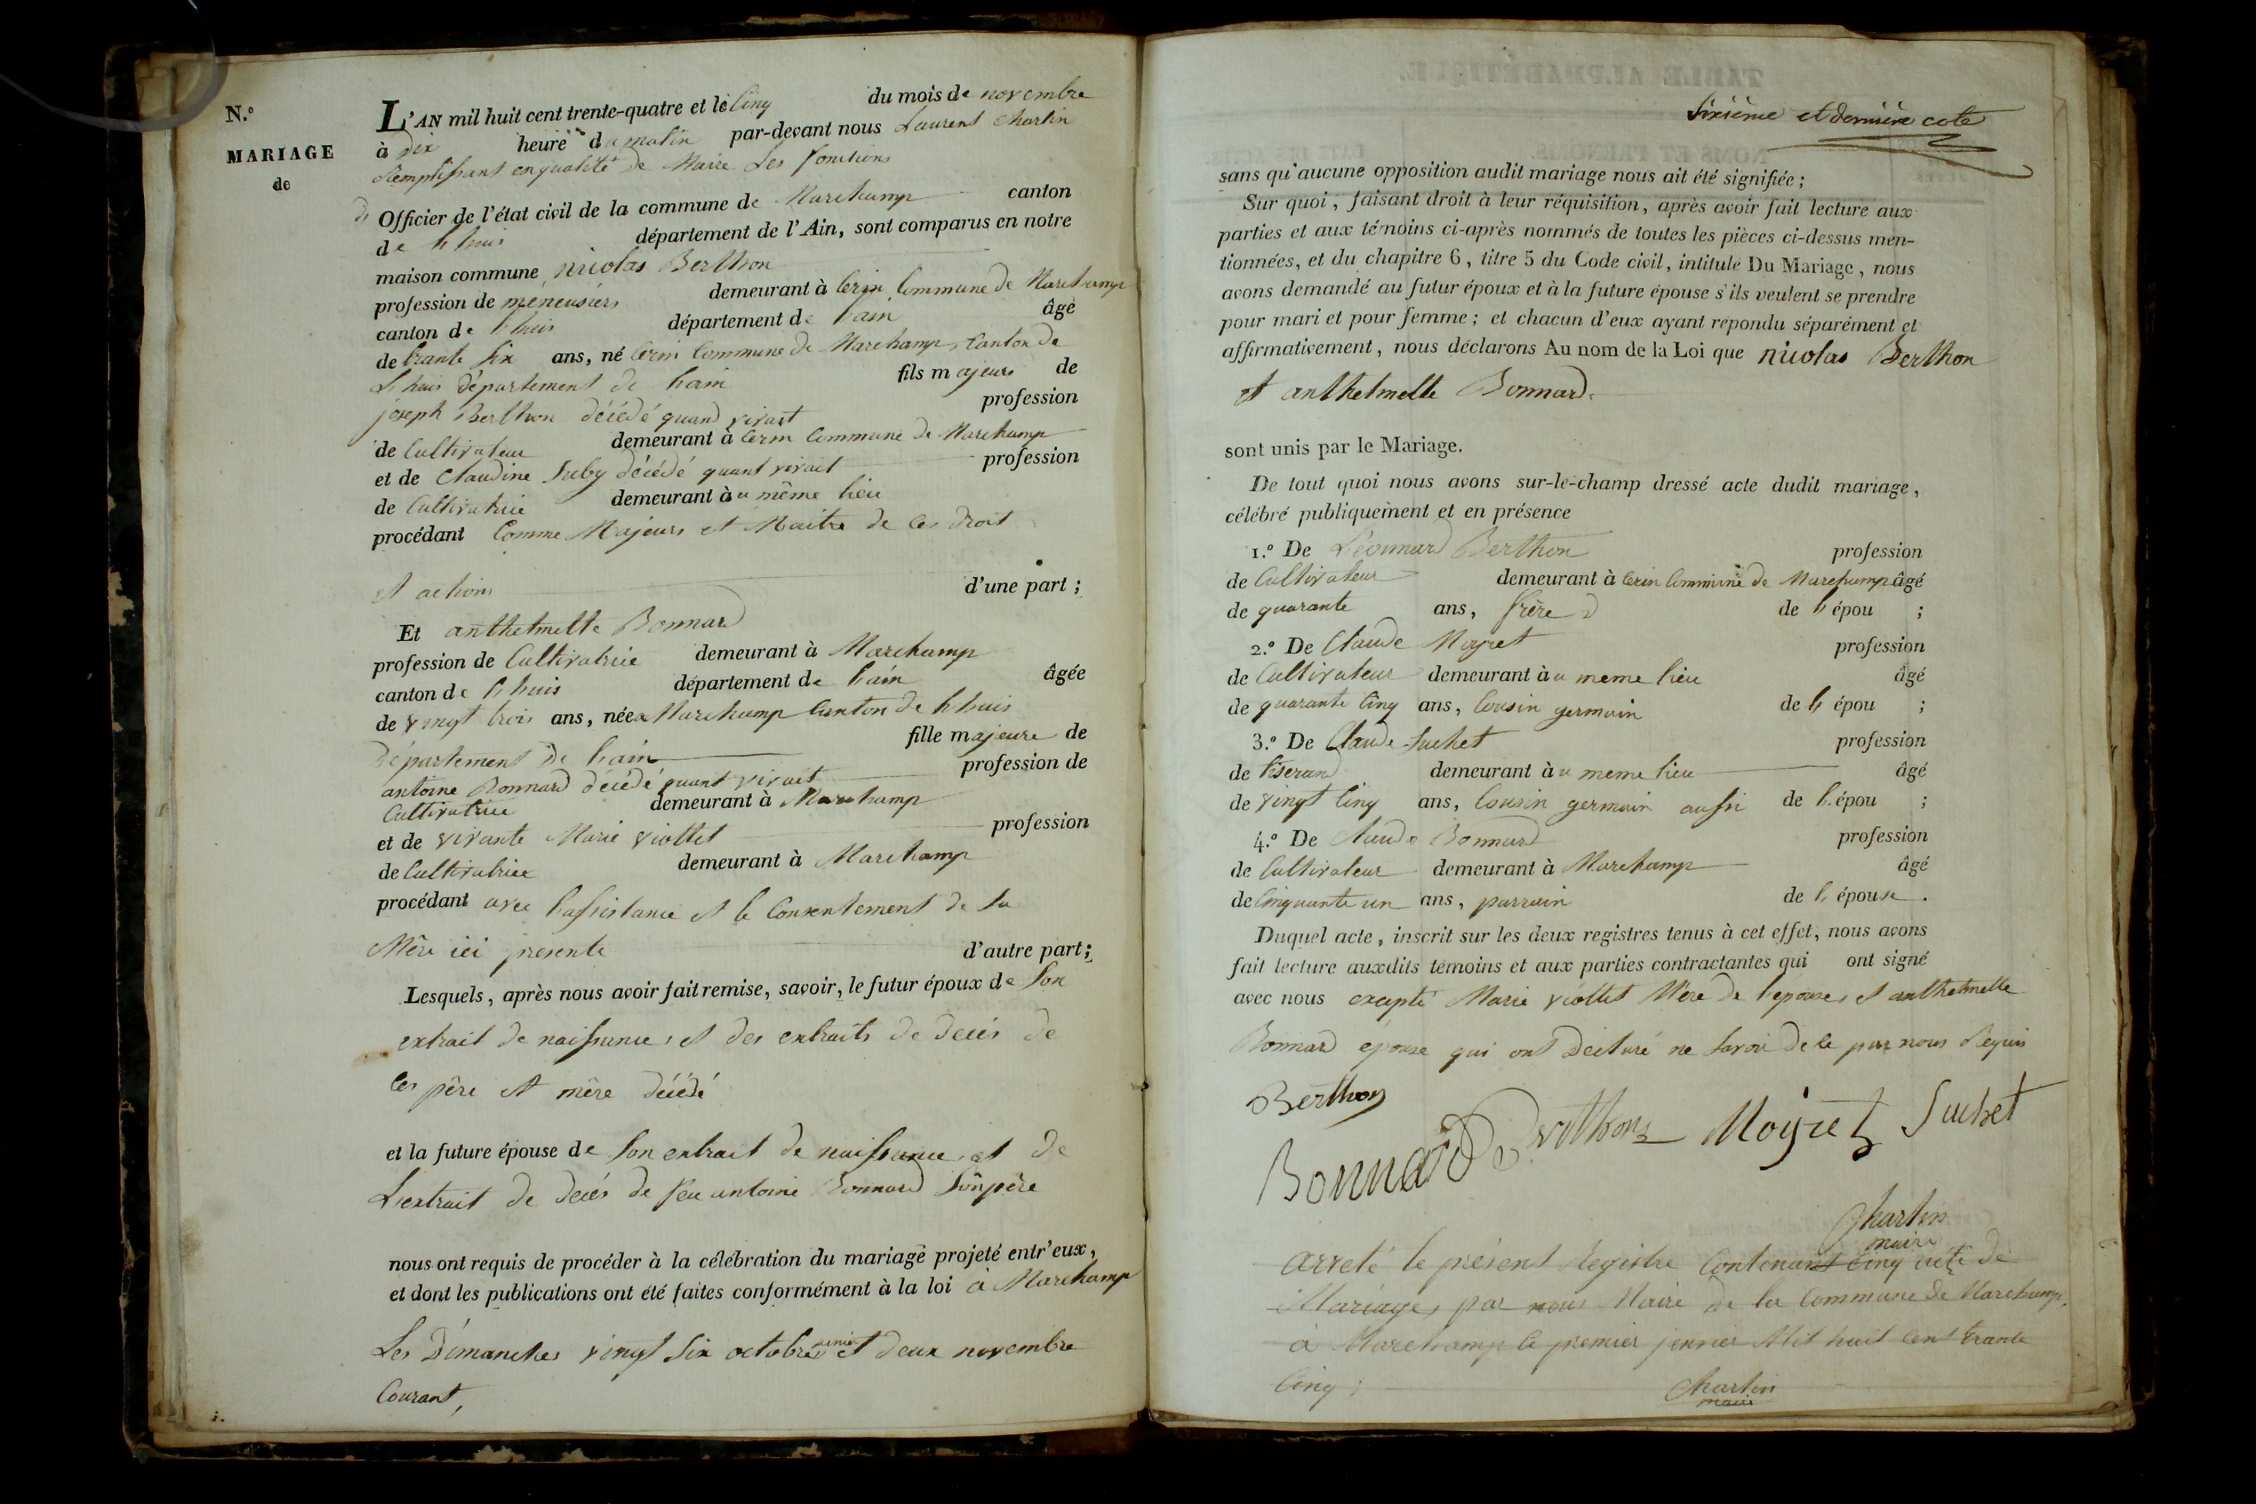 N.o
MARIAGE
de
L'AN mil huit cent trente-quatre et le Cinq du mois de novembre
à dix heure du matin par-devant nous Laurent Charlin
Remplissant enqualité de Maire Les fonctions
d' Officier de l'état civil de la commune de Marchamp canton
de Lhuis département de l'Ain, sont comparus en notre
maison commune nicolas Berthon
profession de meneusiers demeurant à Cerin Commune de Marchamp
canton de Lhuis département de Lain âgé
de trante six ans, né Cerin Commune de Marchamp, Canton de
Lhuis département de Lain fils majeurs de
joseph Berthon décédé quand vivait profession
de Cultivateur demeurant à Cerin Commune de Marchamp
et de Claudine décédé quant vivait profession
de Cultivatrice demeurant au même lieu
procédant Comme Majeurs et Maitre de ces droit
et actions d'une part ;
Et anthelmette Bonnard
profession de Cultivatrice demeurant à Marchamp
canton de Lhuis département de Lain âgée
de vingt trois ans, née a Marchamp Canton de Lhuis
département de Lain fille majeure de
antoine Bonnard décédé quant vivait profession de
Cultivatrice demeurant à Marchamp
et de vivante Marie viollet profession
de Cultivatrice demeurant à Marchamp
procédant avec Lassistance et le Consentement de sa
Mère ici presente d'autre part ;
Lesquels, après nous avoir fait remise, savoir, le futur époux de son
extrait de naissance, et des extraits de decés de
ces père et mère décédé
et la future épouse de son extrait de naissance et de
Lextrait de decés de feu antoine Bonnard son père
nous ont requis de procéder à la célébration du mariage projeté entr'eux,
et dont les publications ont été faites conformément à la loi à Marchamp
Les Dimanches vingt six octobre dernier et deux novembre
Courant,
Sixième et dernière cote
sans qu'aucune opposition audit mariage nous ait été signifiée ;
Sur quoi, faisant droit à leur réquisition, après avoir fait lecture aux
parties et aux témoins ci-après nommés de toutes les pièces ci-dessus men-
tionnées, et du chapitre 6, titre 5 du Code civil, intitulé Du Mariage, nous
avons demandé au futur époux et à la future épouse s'ils veulent se prendre
pour mari et pour femme ; et chacun d'eux ayant répondu séparément et
affirmativement, nous déclarons Au nom de la Loi que nicolas Berthon
et anthelmette Bonnard.
sont unis par le Mariage.
De tout quoi nous avons sur-le-champ dressé acte dudit mariage,
célébré publiquement et en présence
1.o De Léonnard Berthon profession
de Cultivateur demeurant à Cerin Commune de Marchamp âgé
de quarante ans, frère de Lépou ;
2.o De Claude Moyret profession
de Cultivateur demeurant au meme lieu âgé
de quarante Cinq ans, Cousin germain de L épou ;
3.o De Claude Suchet profession
de tiserand demeurant au meme lieu âgé
de vingt Cinq ans, Cousin germain aussi de L épou ;
4.o De Claude Bonnard profession
de Cultivateur demeurant à Marchamp âgé
de Cinquante un ans, parrain de L épouse.
Duquel acte, inscrit sur les deux registres tenus à cet effet, nous avons
fait lecture auxdits témoins et aux parties contractantes qui ont signé
avec nous excepté Marie viollet Mère de Lepouse, et anthelmette
Bonnard épouse qui ont Déclaré ne Savoir de ce par nous Requis
Berthon
Bonnard Berthon Moyret Suchet
Charlin
maire
arreté le présent Registre Contenant Cinq acte de
Mariages par nous Maire de la Commune de Marchamp,
à Marchamp le premier jenvier Mil huit cent trante
Cinq ;
Charlin
maire